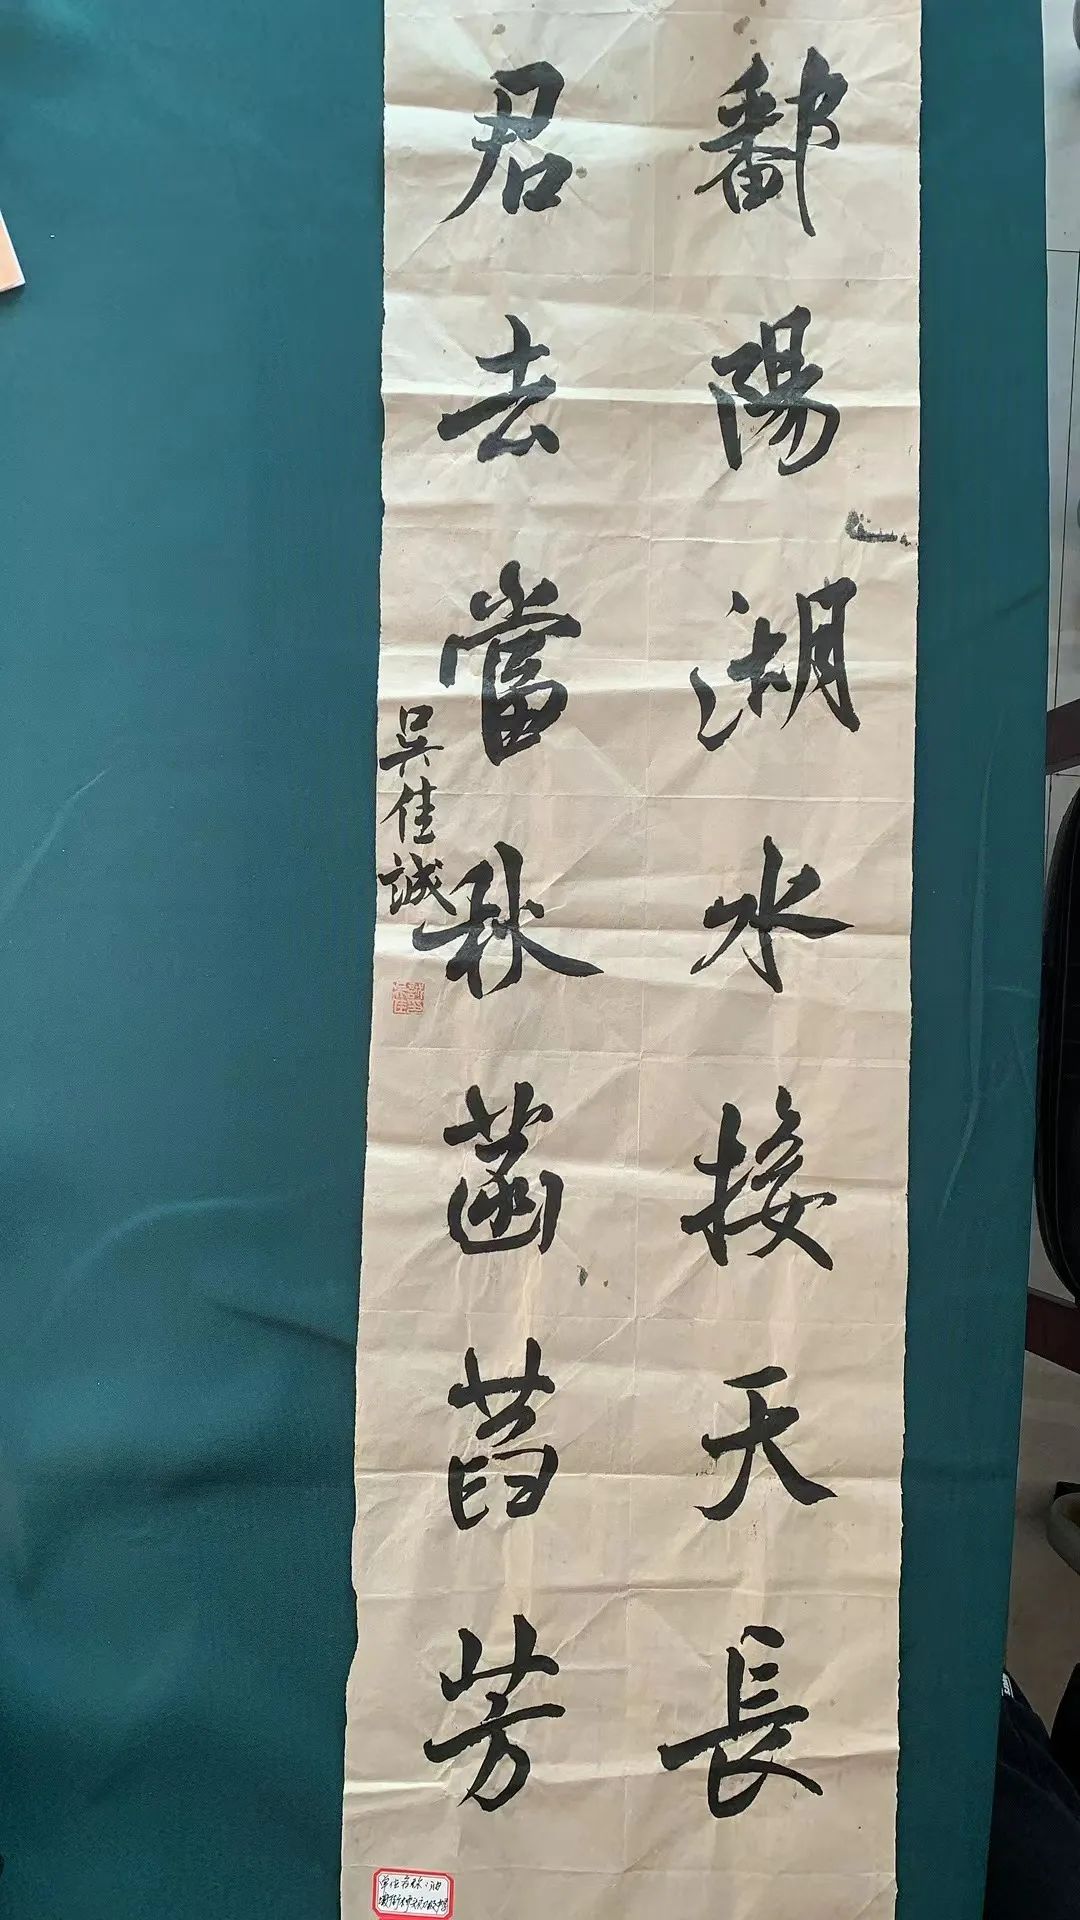 鄱陽湖水接天長
君去當秋菡萏芳
吳佳誠